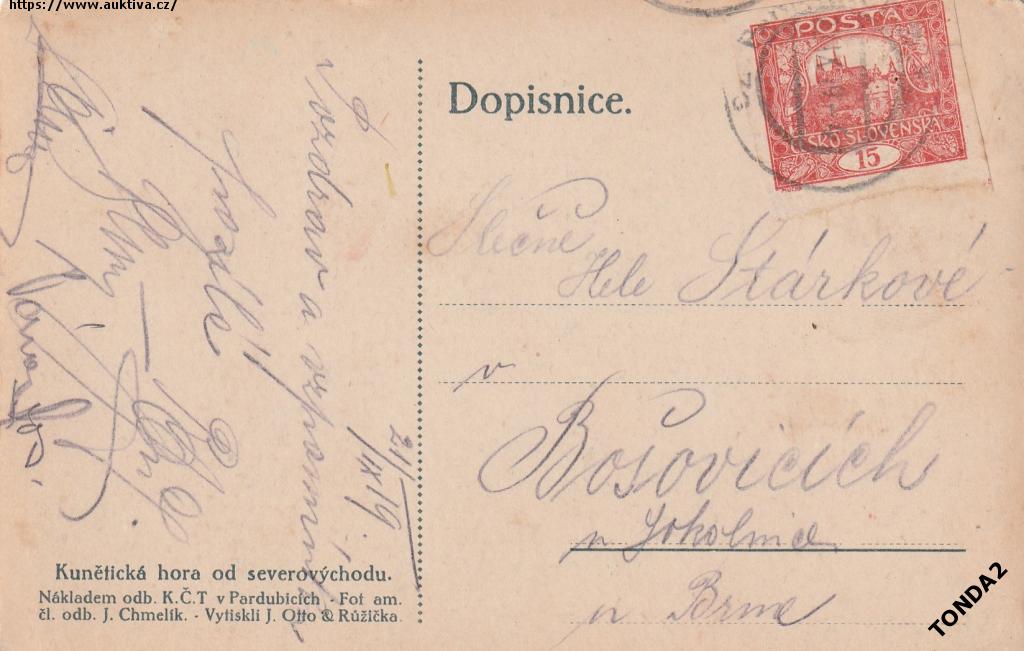 https://www.auktiva.cz/
Dopisnice.
POSTA
ČESKO-SLOVENSKÁ
15
Slečně
Hele Stárkové
v
Bošovicích
u Sokolnic
u Brna
21/IX 19.
Pozdrav a vzpomínku
Kunětická hora od severovýchodu.
Nákladem odb. K.Č.T v Pardubicích · Fot am.
čl. odb. J. Chmelík. · Vytiskli J. Otto & Růžička
TONDA2